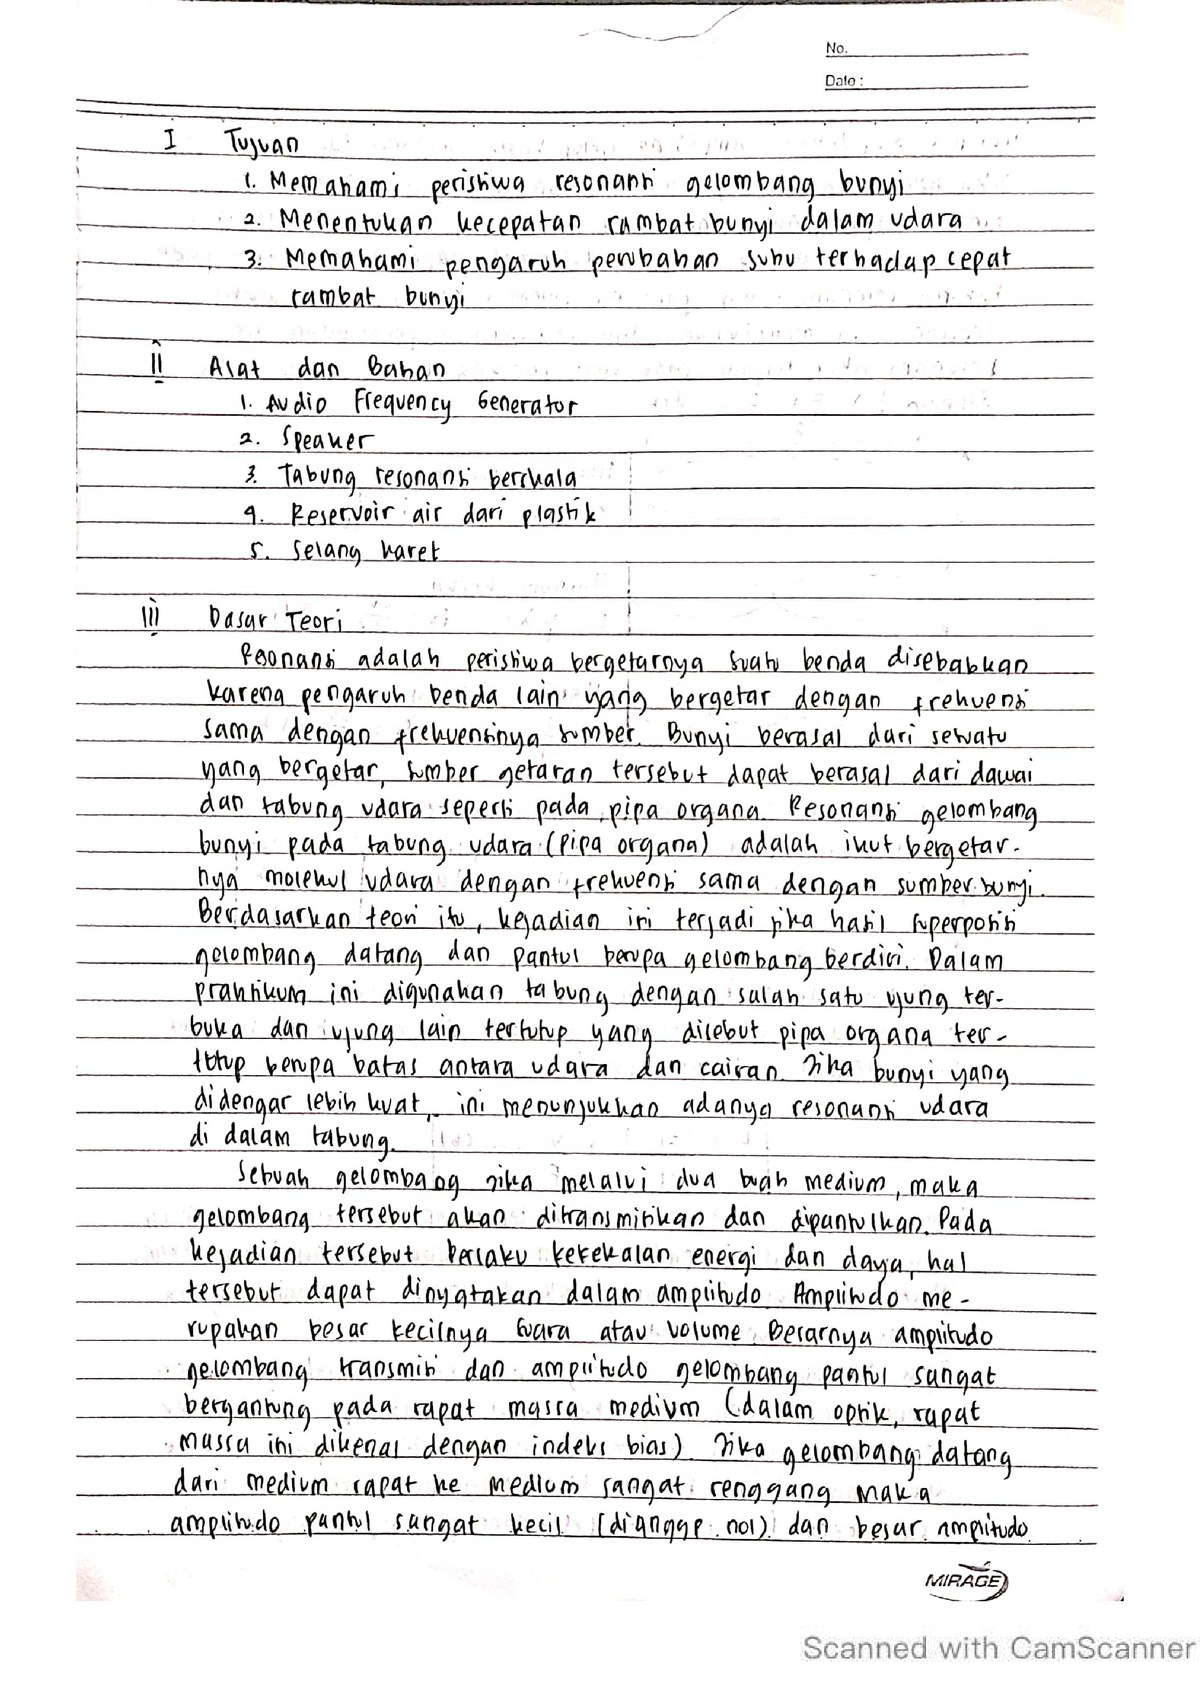 No.
Date :
I Tujuan
1. Memahami peristiwa resonansi gelombang bunyi
2. Menentukan kecepatan rambat bunyi dalam udara
3. Memahami pengaruh perubahan suhu terhadap cepat
rambat bunyi
II Alat dan Bahan
1. Audio Frequency Generator
2. Speaker
3. Tabung resonansi berskala
4. Reservoir air dari plastik
5. Selang karet
III Dasar Teori
Resonansi adalah peristiwa bergetarnya suatu benda disebabkan
karena pengaruh benda lain yang bergetar dengan frekuensi
sama dengan frekuensinya sumber. Bunyi berasal dari sewatu
yang bergetar, sumber getaran tersebut dapat berasal dari dawai
dan tabung udara seperti pada pipa organa. Resonansi gelombang
bunyi pada tabung udara (pipa organa) adalah ikut bergetar-
nya molekul udara dengan frekuensi sama dengan sumber bunyi.
Berdasarkan teori itu, kejadian ini terjadi jika hasil superposisi
gelombang datang dan pantul berupa gelombang berdiri. Dalam
praktikum ini digunakan tabung dengan salah satu ujung ter-
buka dan ujung lain tertutup yang disebut pipa organa ter-
tutup berupa batas antara udara dan cairan. Jika bunyi yang
didengar lebih kuat, ini menunjukkan adanya resonansi udara
di dalam tabung.
Sebuah gelombang jika melalui dua buah medium, maka
gelombang tersebut akan ditransmisikan dan dipantulkan. Pada
kejadian tersebut berlaku kekekalan energi dan daya, hal
tersebut dapat dinyatakan dalam amplitudo. Amplitudo me-
rupakan besar kecilnya suara atau volume. Besarnya amplitudo
gelombang transmisi dan amplitudo gelombang pantul sangat
bergantung pada rapat massa medium (dalam optik, rapat
massa ini dikenal dengan indeks bias). Jika gelombang datang
dari medium rapat ke medium sangat renggang maka
amplitudo pantul sangat kecil (dianggp nol) dan besar amplitudo
MIRAGE
Scanned with CamScanner